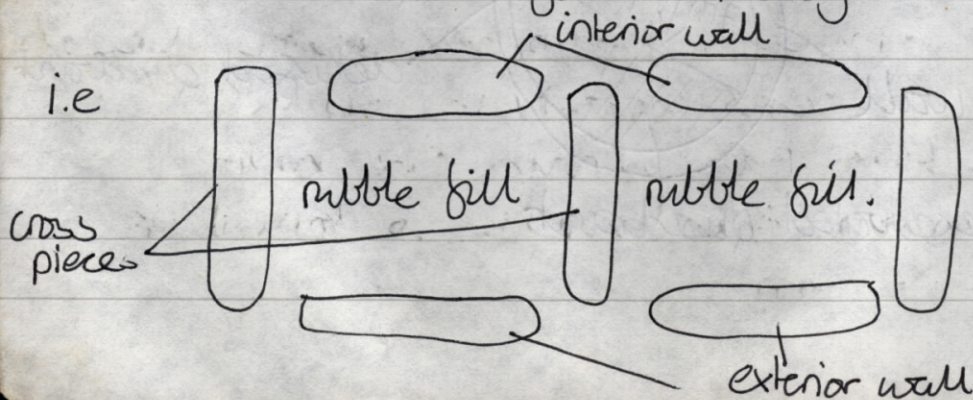 interior wall
i.e
rubble fill rubble fill.
cross
pieces
exterior wall